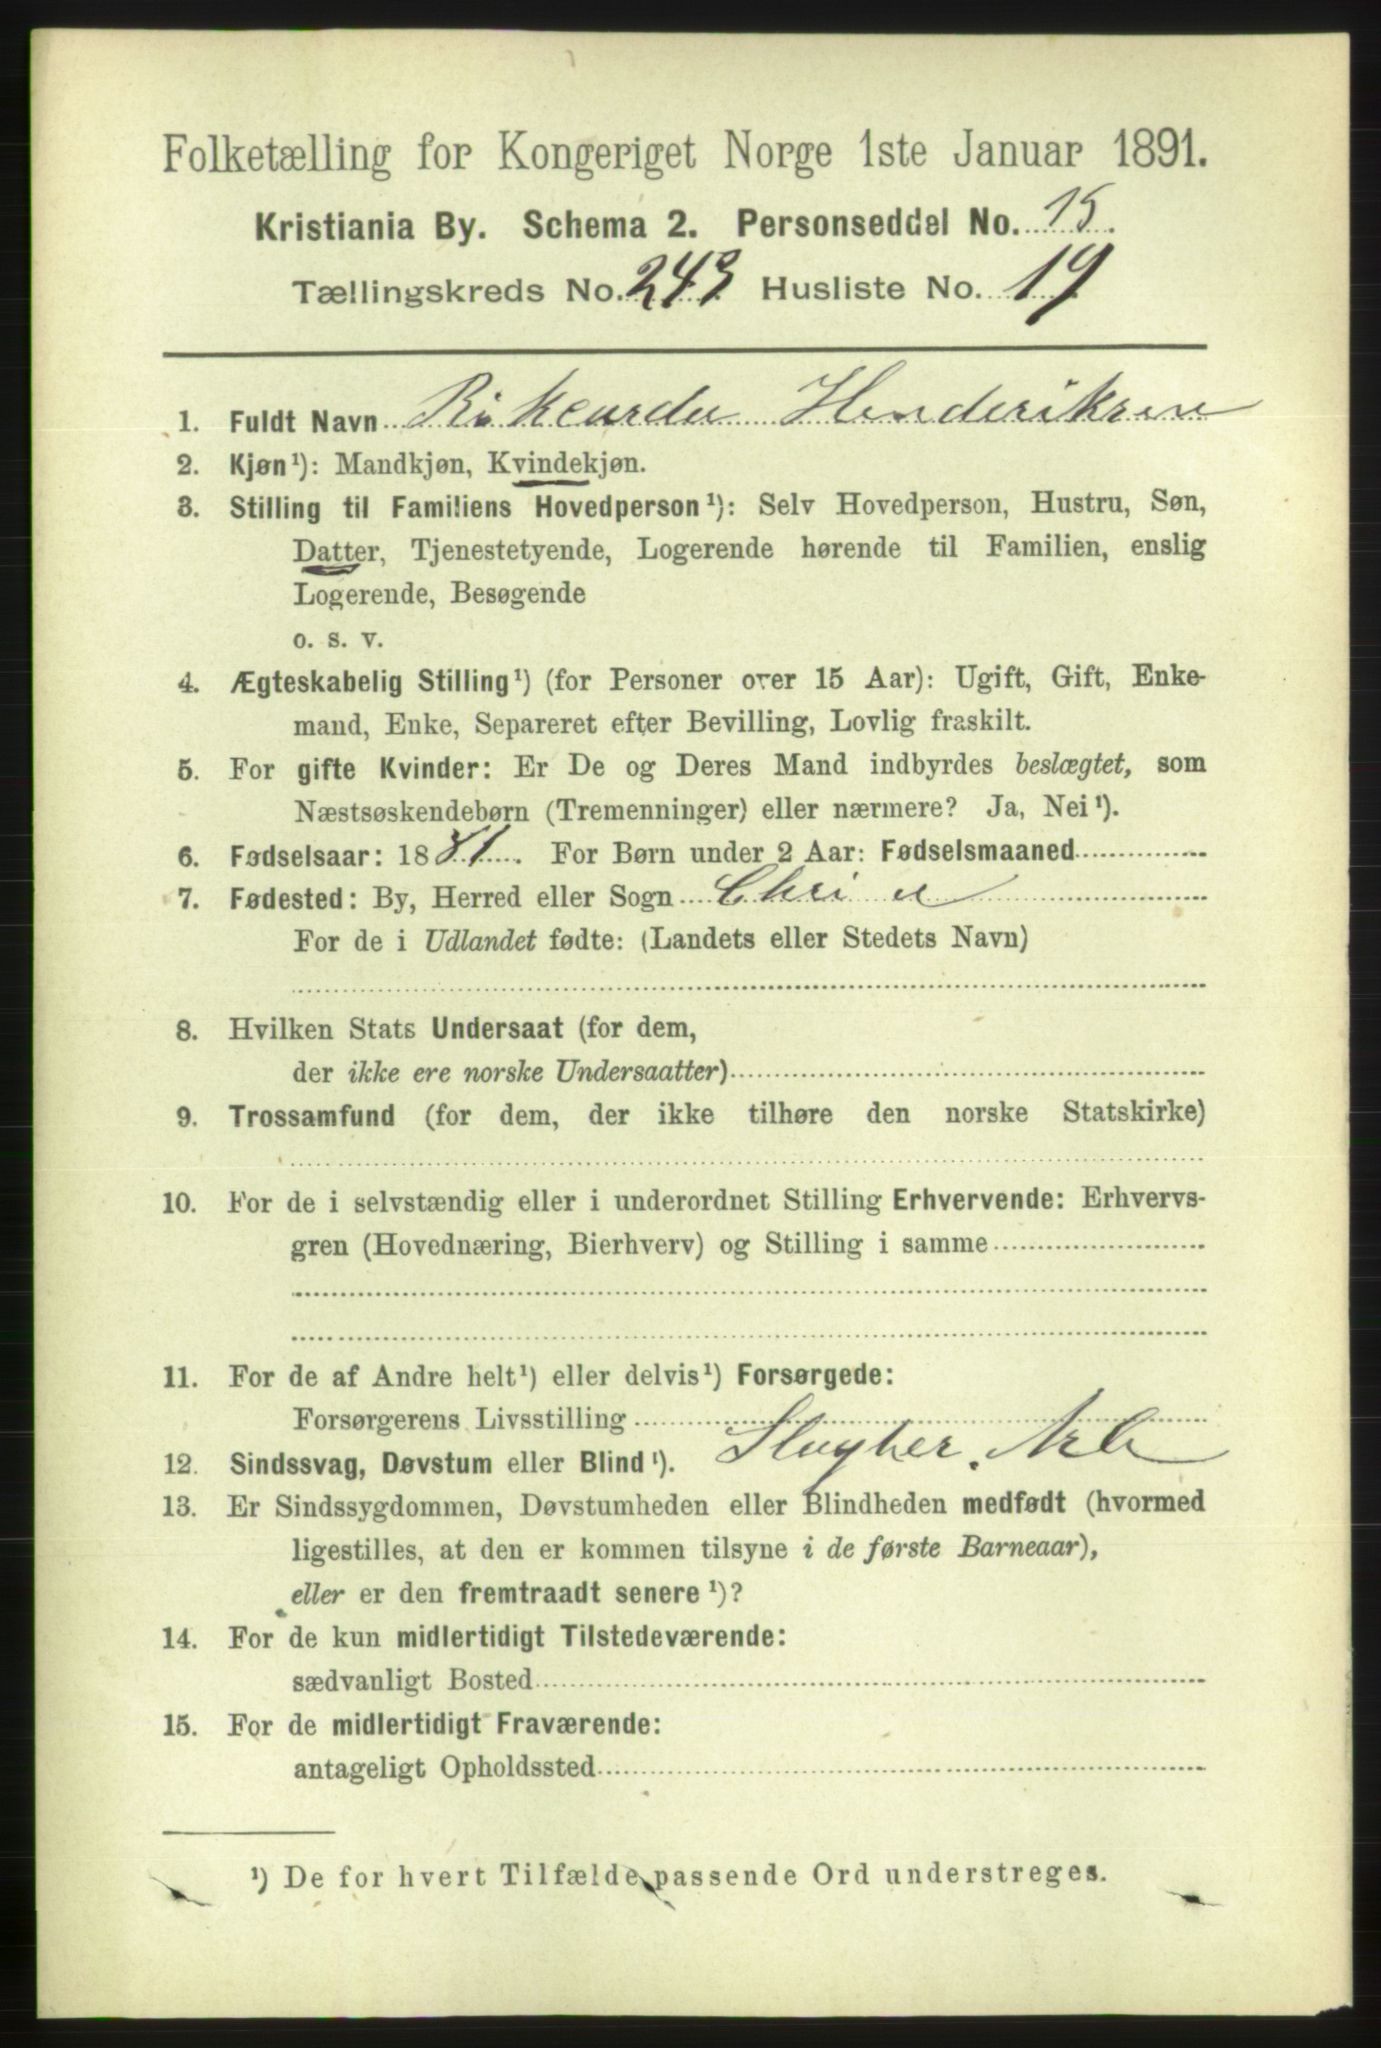 Folketælling for Kongeriget Norge 1ste Januar 1891.
Kristiania By. Schema 2. Personseddel No. 15.
Tællingskreds No. 243 Husliste No. 19
1. Fuldt Navn Rikearda Henderiksen
2. Kjøn¹): Mandkjøn, Kvindekjøn.
3. Stilling til Familiens Hovedperson¹): Selv Hovedperson, Hustru, Søn,
Datter, Tjenestetyende, Logerende hørende til Familien, enslig
Logerende, Besøgende
o. s. v.
4. Ægteskabelig Stilling¹) (for Personer over 15 Aar): Ugift, Gift, Enke-
mand, Enke, Separeret efter Bevilling, Lovlig fraskilt.
5. For gifte Kvinder: Er De og Deres Mand indbyrdes beslægtet, som
Næstsøskendebørn (Tremenninger) eller nærmere? Ja, Nei¹).
6. Fødselsaar: 1881. For Børn under 2 Aar: Fødselsmaaned
7. Fødested: By, Herred eller Sogn Chri a
For de i Udlandet fødte: (Landets eller Stedets Navn)
8. Hvilken Stats Undersaat (for dem,
der ikke ere norske Undersaatter)
9. Trossamfund (for dem, der ikke tilhøre den norske Statskirke)
10. For de i selvstændig eller i underordnet Stilling Erhvervende: Erhvervs-
gren (Hovednæring, Bierhverv) og Stilling i samme
11. For de af Andre helt¹) eller delvis¹) Forsørgede:
Forsørgerens Livsstilling
12. Sindssvag, Døvstum eller Blind¹). Arb
13. Er Sindssygdommen, Døvstumheden eller Blindheden medfødt (hvormed
ligestilles, at den er kommen tilsyne i de første Barneaar),
eller er den fremtraadt senere¹)?
14. For de kun midlertidigt Tilstedeværende:
sædvanligt Bosted
15. For de midlertidigt Fraværende:
antageligt Opholdssted
¹) De for hvert Tilfælde passende Ord understreges.